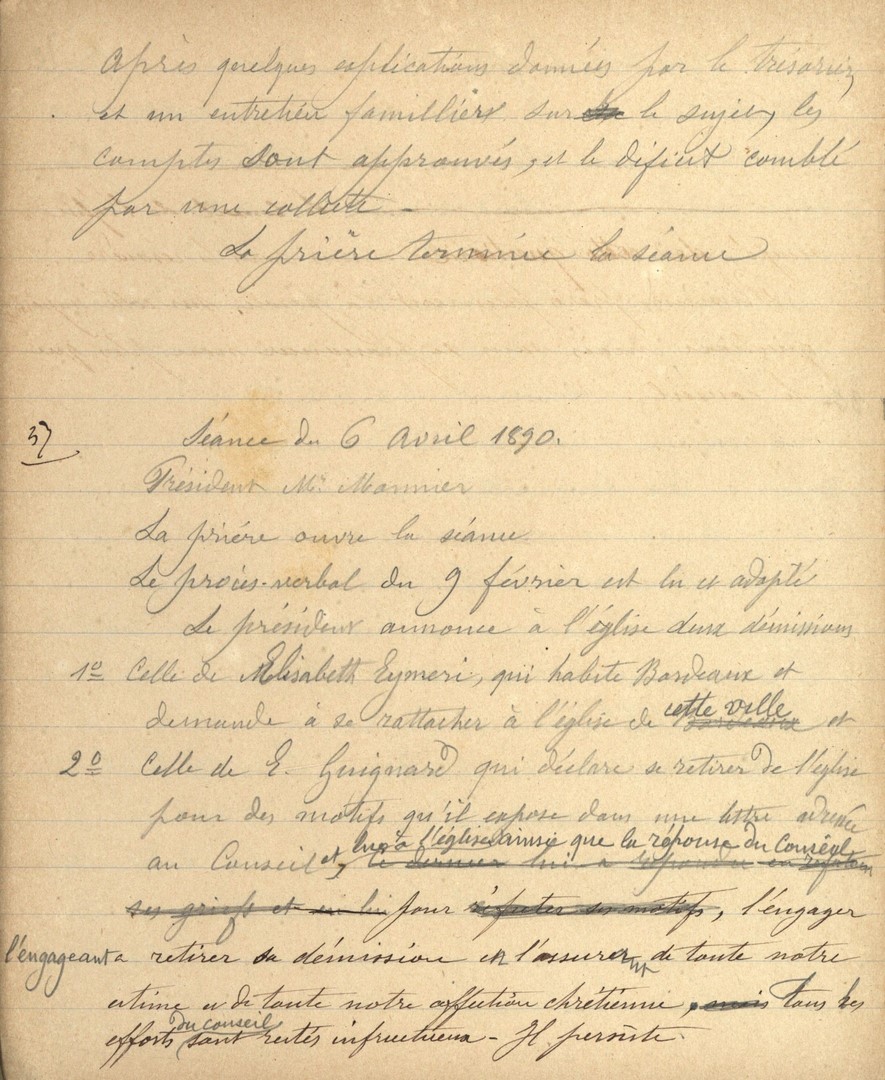 Après quelques explications données par le trésorier,
et un entretien famillier sur le sujet, les
comptes sont approuvés, et le déficit comblé
par une collecte.—
La prière termine la séance
37
Séance du 6 Avril 1890.
Président Mr Monnier
La prière ouvre la séance
Le procès-verbal du 9 février est lu et adopté
Le président annonce à l'église deux démissions
1o Celle de Elisabeth Eymeri, qui habite Bordeaux et
cette ville
demande à se rattacher à l'église de Bordeaux et
2o Celle de E. Guignard qui déclare se retirer de l'église
pour des motifs qu'il expose dans une lettre adressée
lue à l'église ainsi que la réponse du Conseil
au Conseil et, ce dernier lui a répondu en réfutant
ses griefs et en lui pour réfuter ses motifs, l'engager
l'engageant a retirer sa démission et l'assurer de toute notre
estime et de toute notre affection chrétienne, mais tous les
du conseil
efforts sont restés infructueux - Il persiste.